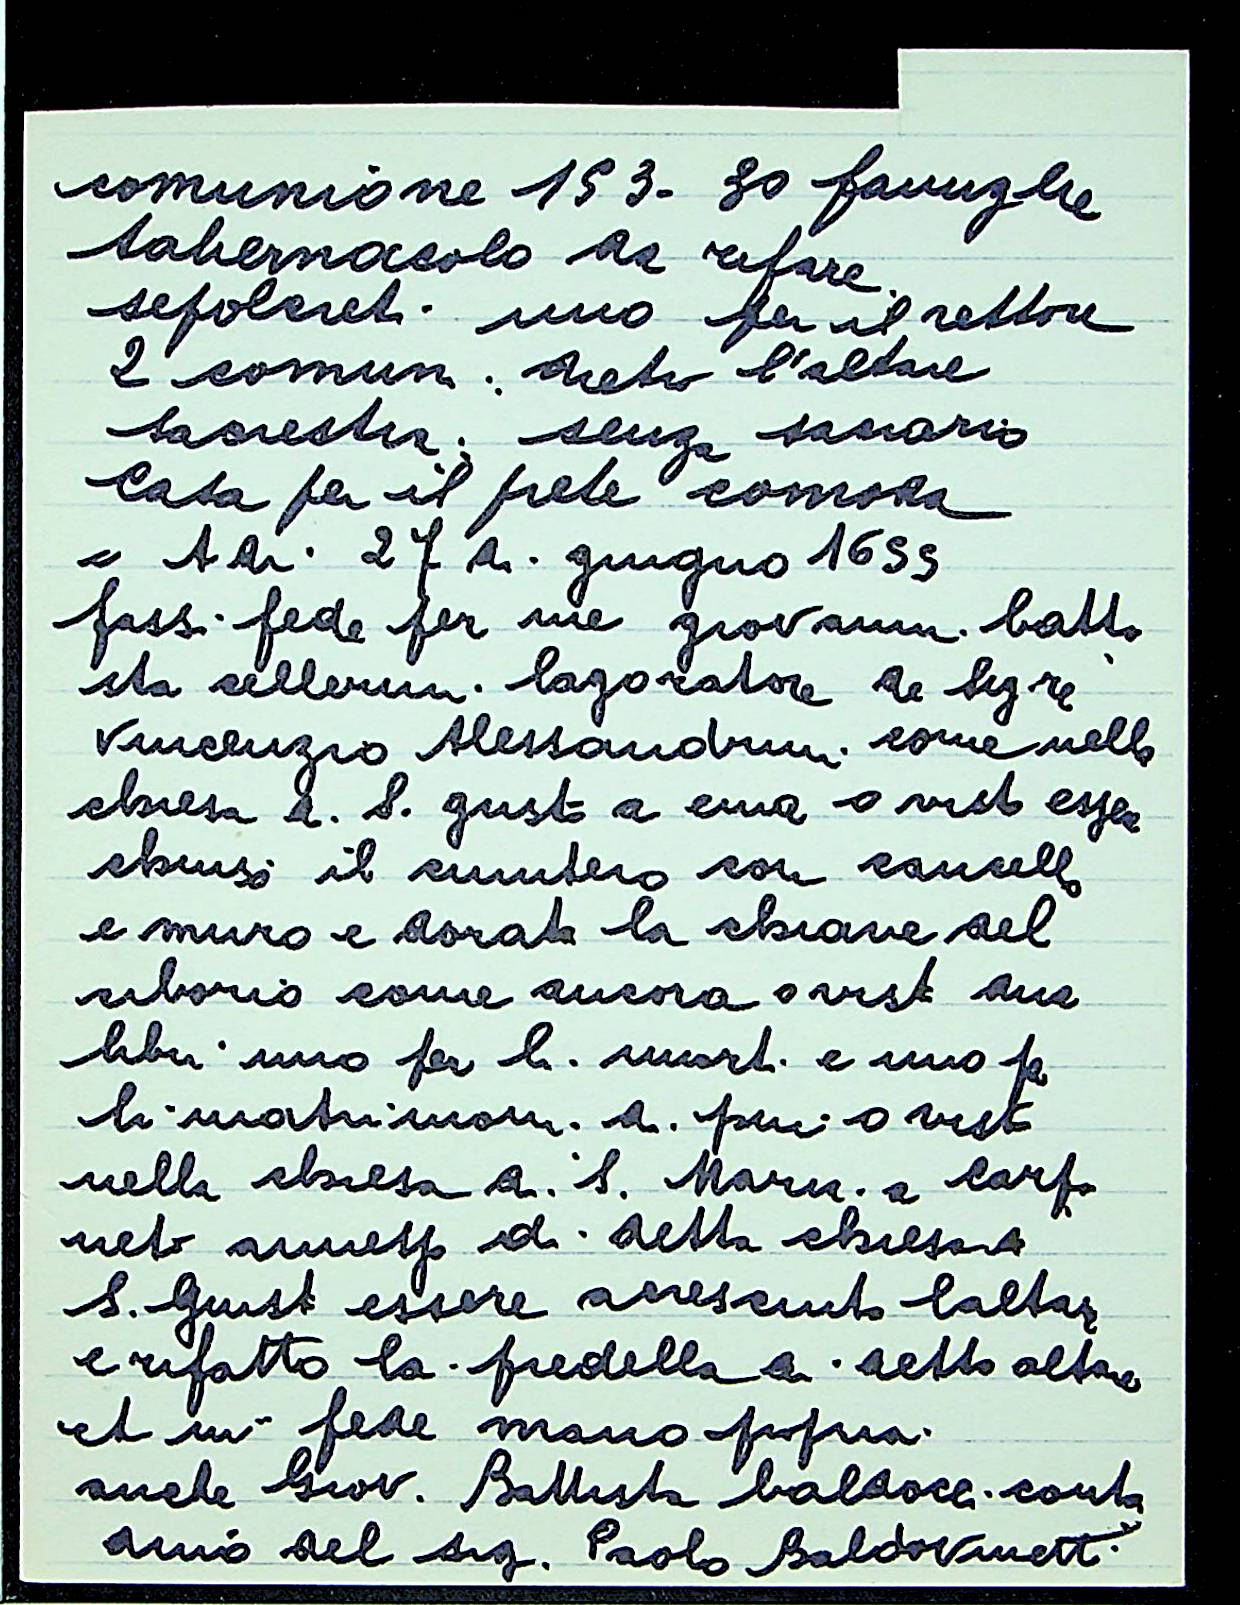 comunione 153 - 30 famiglie
tabernacolo da rifare.
sepolcreti. uno per il rettore
2 comuni. dietro l'altare
sacrestia: senza sacrario
Casa per il prete comoda
A di 27 di giugno 1655
fassi fede per me giovanni batti
sta cellerini lagoratore de Sigre
Vincenzio Alessandrini come nella
chiesa di S. giusto a ema o visto esser
chiuso il cimitero con cancello
e muro e dorata la chiave del
ciborio come ancora o visto dua
libri uno per li morti e uno per
li matrimoni di piu o visto
nella chiesa di S. Maria a Carpi
neto annesso di detta chiesa di
S. Giusto essere acresciuto laltare
e rifatto la predella di detto altare
et in fede mano propria
anche Giov. Battista baldocci conta
dino del sig. Paolo Baldovinetti